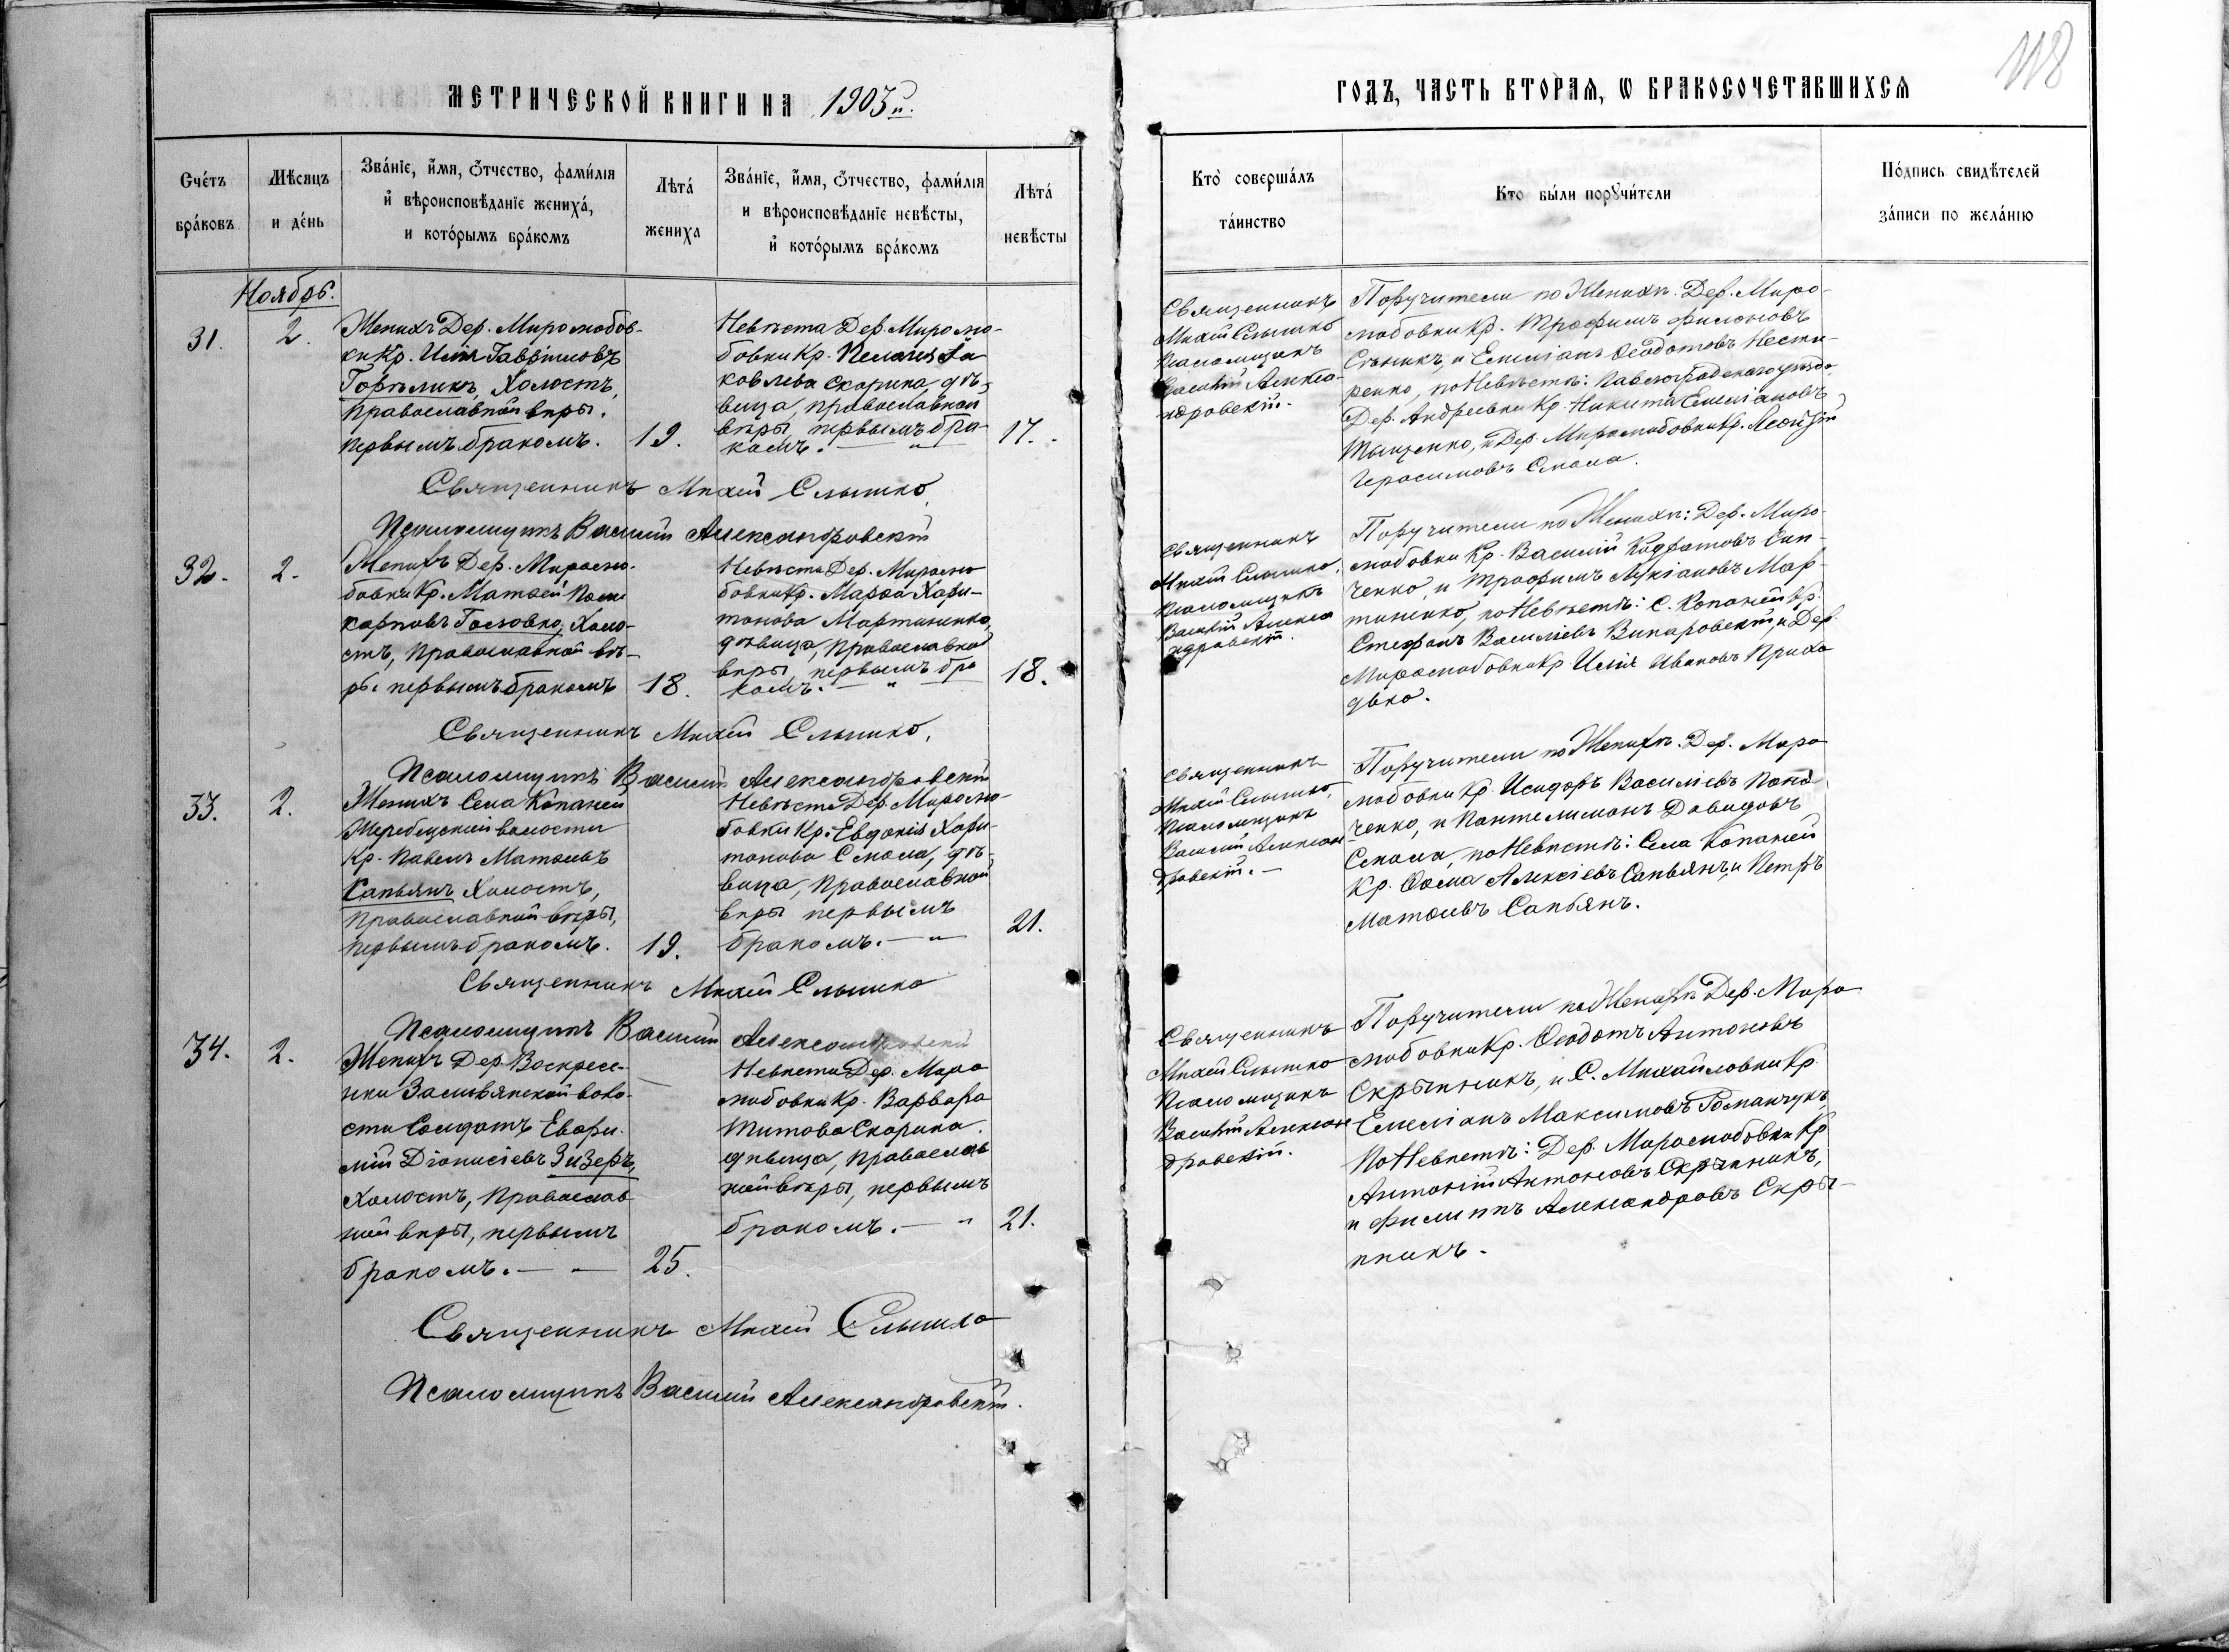 118
МЕТРИЧЕСКОЙ КНИГИ НА 1903 й.
ГОДЪ, ЧАСТЬ ВТОРАЯ, Ѡ БРАКОСОЧЕТАВШИХСЯ
Сче́тъ бра́ковъ
Мѣсяцъ и де́нь
Зва́нїе, и҆́мя, ѻ҆́тчество, фами́лїя
и҆ вѣроисповѣданїе жениха́,
и кото́рымъ бра́комъ
Лѣта́ жениха
Зва́нїе, и҆́мя, ѻ҆́тчество, фами́лїя
и вѣроисповѣданїе невѣсты,
и҆ кото́рымъ бра́комъ
Лѣта́ невѣсты
Кто̀ соверша́лъ та́инство
Кто бы́ли порꙋчи́тели
По́дпись свидѣтелей за́писи по жела́нїю
Ноябрь.
31.
2.
Женихъ Дер. Миролюбов-
ки Кр. Илія Гавріиловъ
Горѣликъ, Холостъ,
православной вѣры.
первымъ бракомъ.
19.
Невѣста Дер. Миролю-
бовки Кр. Пелагія Iа
ковлева Скорина, дѣ-
вица, православной
вѣры первымъ бра-
комъ. — "
17.
Священникъ
Михей Слышко
Псаломщикъ
Василій Алекса-
ндровскій.
Поручители по Женихѣ. Дер. Миро-
любовки Кр. Трофимъ Филоновъ
и Емеліанъ Ѳеодотовъ Несте-
ренко, по Невѣстѣ: Павлоградскаго уѣзда
Дер. Андреевки Кр. Никита Емеліановъ
Тыщенко, и Дер. Миролюбовки Кр. Леонтій
Герасимовъ Смола.
Священникъ Михей Слышко
Псаломщикъ Василій Александровскій
32.
2.
Женихъ Дер. Миролю-
бовки Кр. Матѳей Поли
карповъ Головко, Холо-
стъ, православной вѣ-
ры первымъ бракомъ
18.
Невѣста Дер. Миролю
бовки Кр. Марѳа Хари-
тонова Мартиненко,
дѣвица, православной
вѣры первымъ бра
комъ. — "
18.
Священникъ
Михей Слышко,
Псаломщикъ
Василій Алекса
ндровскій.
Поручители по Женихѣ: Дер. Миро-
любовки Кр. Василій Кодратовъ Сип-
ченко, и Трофимъ Лукіановъ Мар-
тиненко, по Невѣстѣ: С. Копаней Кр.
Стефанъ Василіевъ Винаровскій, и Дер.
Миролюбовки Кр. Илія Ивановъ Прихо
дько.
Священникъ Михей Слышко,
Псаломщикъ Василій Александровскій
33.
2.
Женихъ Села Копаней
Жеребецкой волости
Кр. Павелъ Матѳеевъ
Сапьянъ Холостъ,
Православной вѣры,
первымъ бракомъ.
19.
Невѣста Дер. Миролю-
бовки Кр. Евдокія Хари-
тонова Смола, дѣ-
вица, православной
вѣры первымъ
бракомъ. — "
21.
Священникъ
Михей Слышко,
Псаломщикъ
Василій Алексан
дровскій. —
Поручители по Женихѣ. Дер. Миро
любовки Кр. Исидоръ Василіевъ
ченко, и Пантелимонъ Давидовъ
Смола, по Невѣстѣ: Села Копаней
Кр. Ѳома Алексіевъ Сапьянъ, и Петръ
Матѳеевъ Сапьянъ.
Священникъ Михей Слышко
Псаломщикъ Василій Александровскій
34.
2.
Женихъ Дер. Воскресе-
нки Заливянской воло-
сти Солдатъ Евфи-
мій Діонисіевъ Зизеръ,
Холостъ, православ
ной вѣры, первымъ
бракомъ. — "
25.
Невѣста Дер. Миро
любовки Кр. Варвара
Титова Скорина.
дѣвица, православ
ной вѣры, первымъ
бракомъ. — "
21.
Священникъ
Михей Слышко
Псаломщикъ
Василій Алексан
дровскій.
Поручители по Женихѣ Дер. Миро
любовки Кр. Ѳеодотъ Антоновъ
Скрыпникъ, и С. Михайловки Кр.
Емеліанъ Максимовъ Романчукъ,
По Невѣстѣ: Дер. Миролюбовки Кр
Антоній Антоновъ Скрыпникъ,
и Филиппъ Александровъ Скры-
пникъ.
Священникъ Михей Слышко
Псаломщикъ Василій Александровскій.